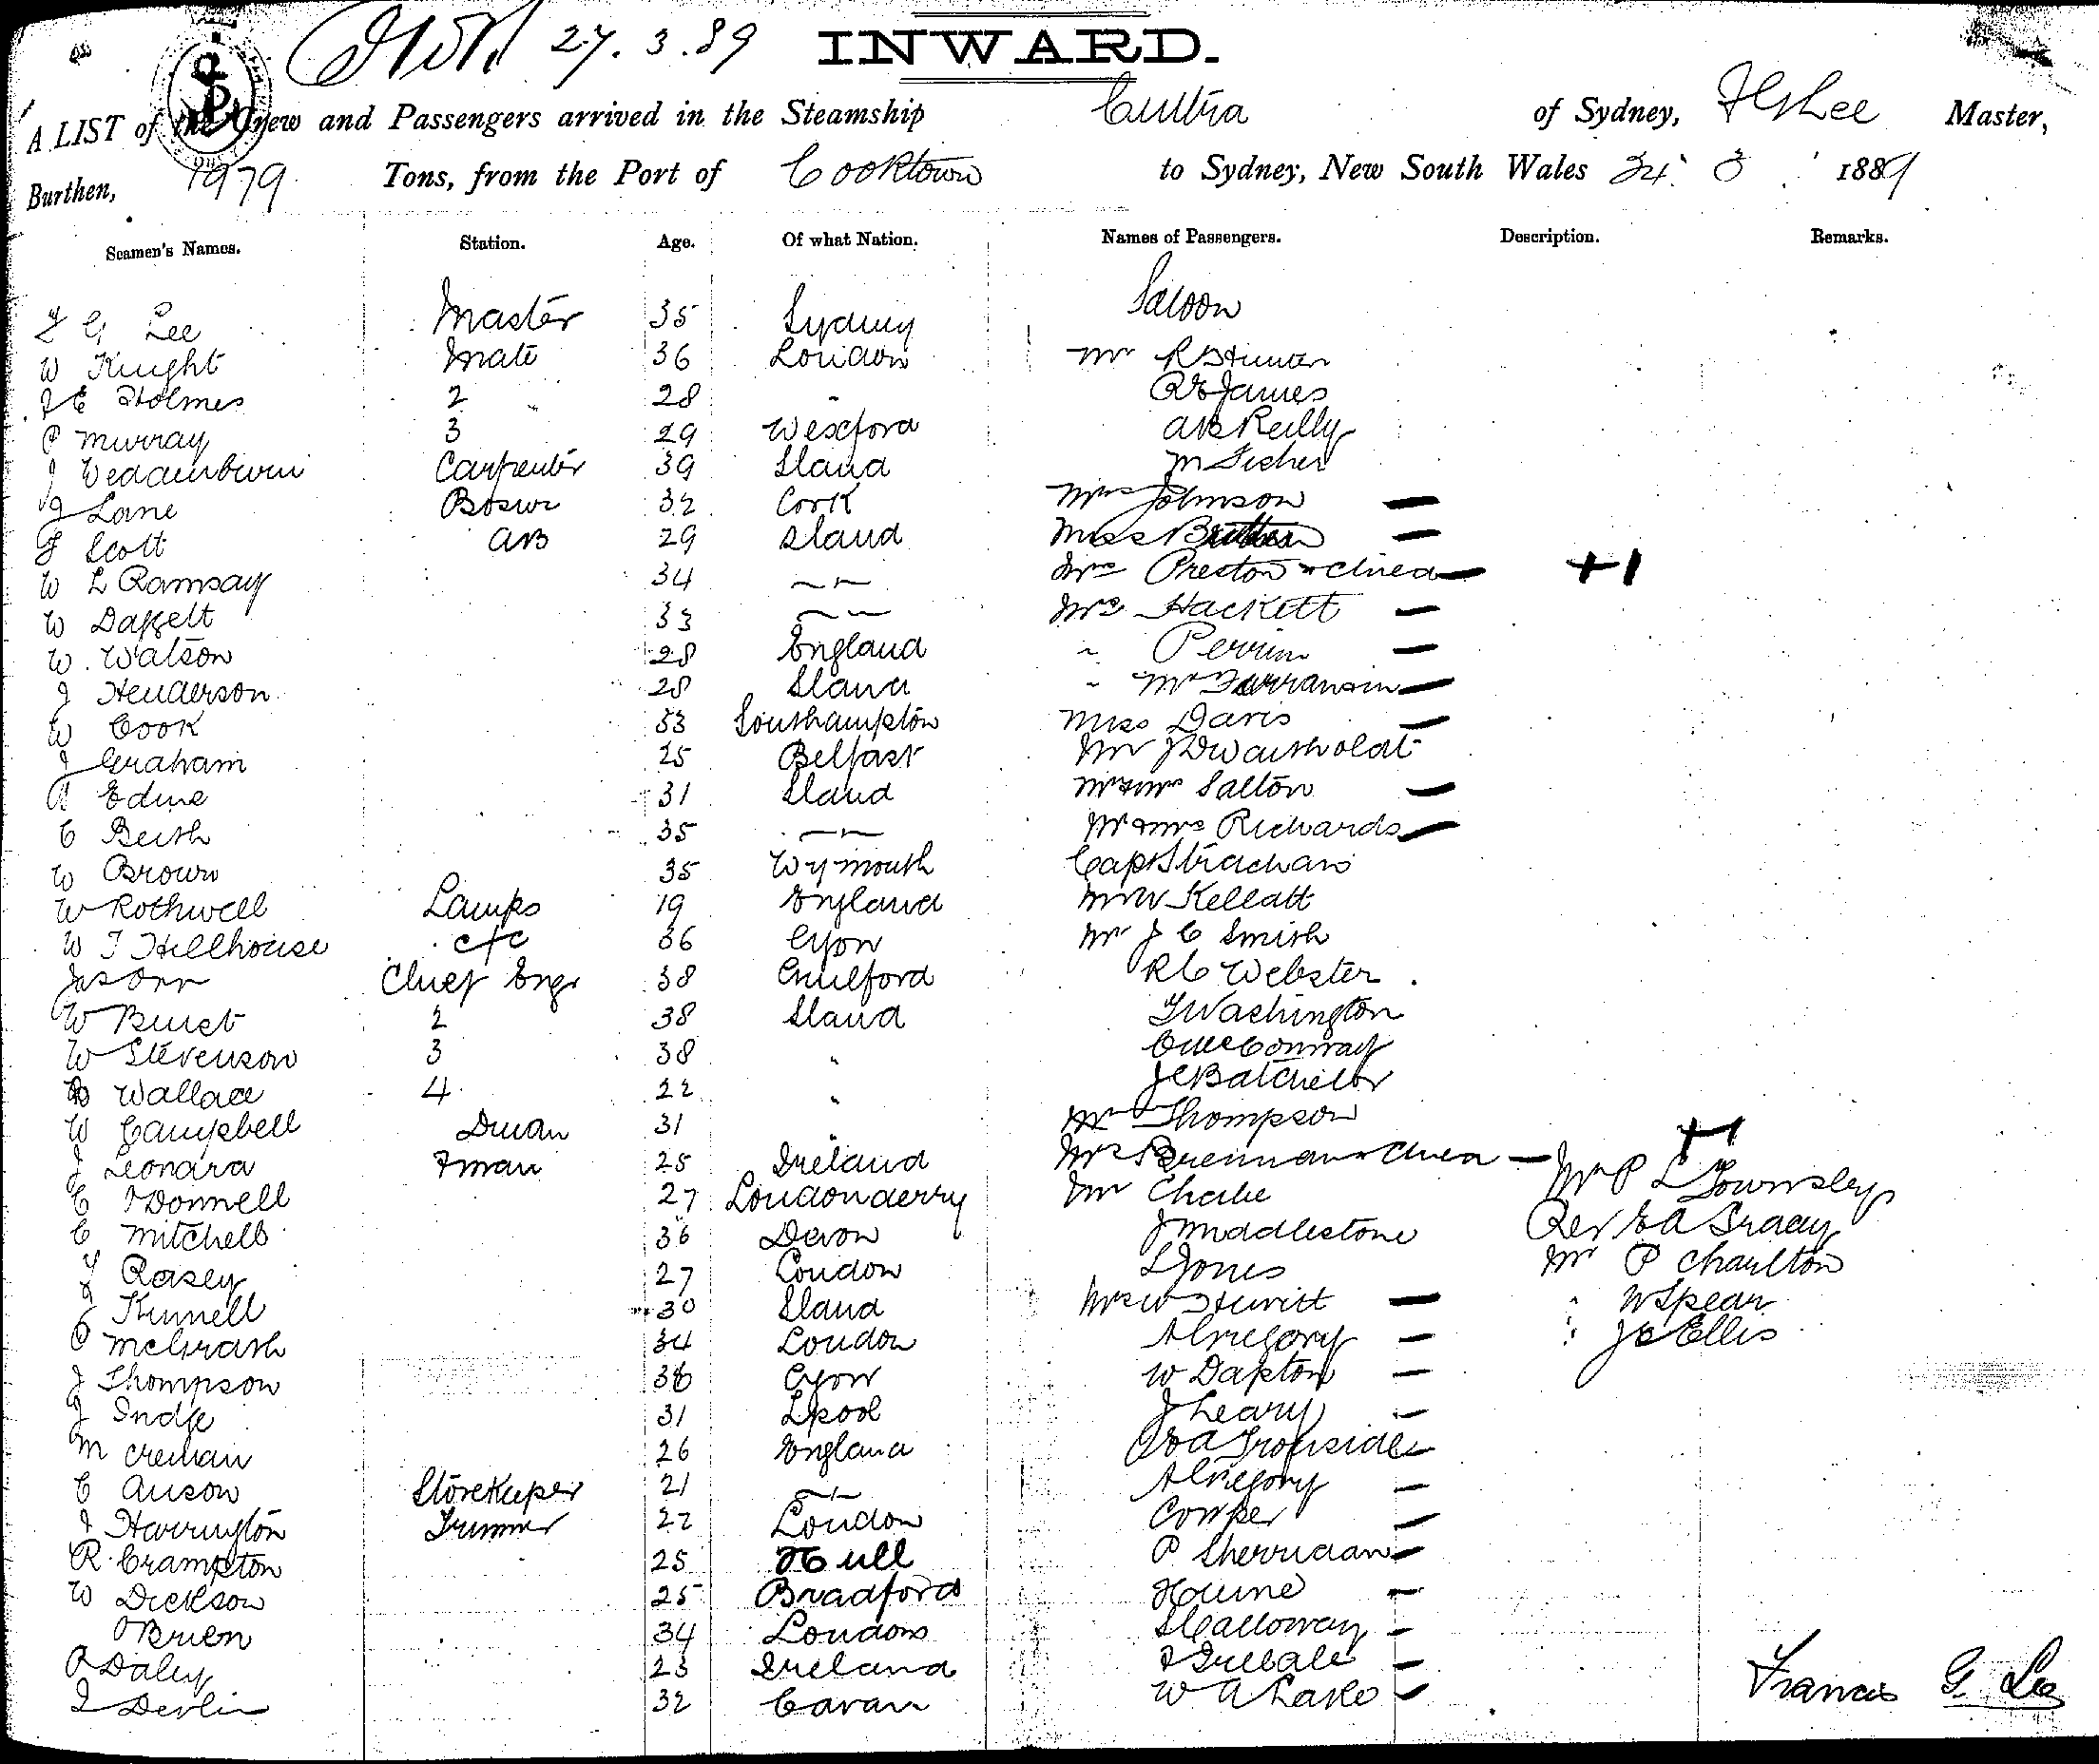 27. 3. 89 INWARD.
A LIST of the Crew and Passengers arrived in the Steamship of Sydney, F G Lee Master,
Burthen, 1979 Tons, from the Port of Cooktown to Sydney, New South Wales 24 3 1889
Seamen's Names. Station. Age. Of what Nation. Names of Passengers. Description. Remarks.
Saloon
F G Lee Master 35 Sydney
W Knight Mate 36 London Mr R Hunter
J E Holmes 2 " 28 " James
P Murray 3 29 Wexford A B Reilly
J Carpenter 39 Sland M Fisher
J Lane Bosun 32 Cork Mrs Johnson —
J Scott AB 29 Sland Miss —
W L Ramsay 34 Mrs Preston & Child — +1
W 33 Mrs Hackett —
W. Watson 28 England " Perrin —
J Henderson 28 Sland "
W Cook 53 Southampton Miss Davis —
J Graham 25 Belfast Mr
A Edine 31 Sland Mr & Mrs Salton —
C Beith 35 Mr & Mrs Richards —
W Brown 35 Wymouth Capt Strachan
W Rothwell Lamps 19 England Mr W Kellatt
W T Hillhouse 36 Mr J C Smith
Jas Orr Chief Engr 38 Guilford R C Webster
W 2 38 Sland Washington
W Stevenson 3 38 " Conway
Wallace 4 22 " J C Batchelor
W Campbell Dman 31 " Mr Thompson
J Leonard Fman 25 Ireland Mrs Brennan & Child — +1
C O'Donnell 27 Londonderry Mr Mr P L Townsley
C Mitchell 36 Devon J Middlestone Rev E A Tracey
Rasey 27 London L Jones Mr P Charlton
Kunnell 30 Sland Mrs W Hewitt — " W Spear
P McGrath 34 London A Gregory — " J C Ellis
J Thompson 38 W Dapton —
J Indge 31 Lpool J Leary —
M Crehan 26 England Ironside —
C Anson Storekeeper 21 A Gregory —
J Harrington Trimmer 22 London Cowper —
R. Crampton 25 Hull P Sherridan —
W Dickson 25 Bradford Horne —
O'Brien 34 London S Calloway —
P Daly 23 Ireland —
J Devlin 32 Cavan W A Lake —
Francis G. Lee